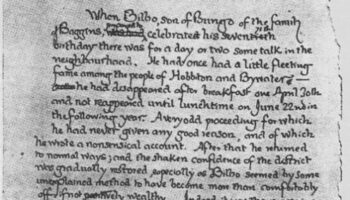 When Bilbo, son of Bungo of the family
of Baggins, celebrated his seventieth
birthday there was for a day or two some talk in the
neighbourhood. He had once had a little fleeting
fame among the people of Hobbiton and Bywater —
he had disappeared after breakfast one April 30th
and not reappeared until lunchtime on June 22nd in
the following year. A very odd proceeding for which
he had never given any good reason, and of which
he wrote a nonsensical account. After that he returned
to normal ways; and the shaken confidence of the district
was gradually restored, especially as Bilbo seemed by some
unexplained method to have become more than comfortably
off, if not positively wealthy.